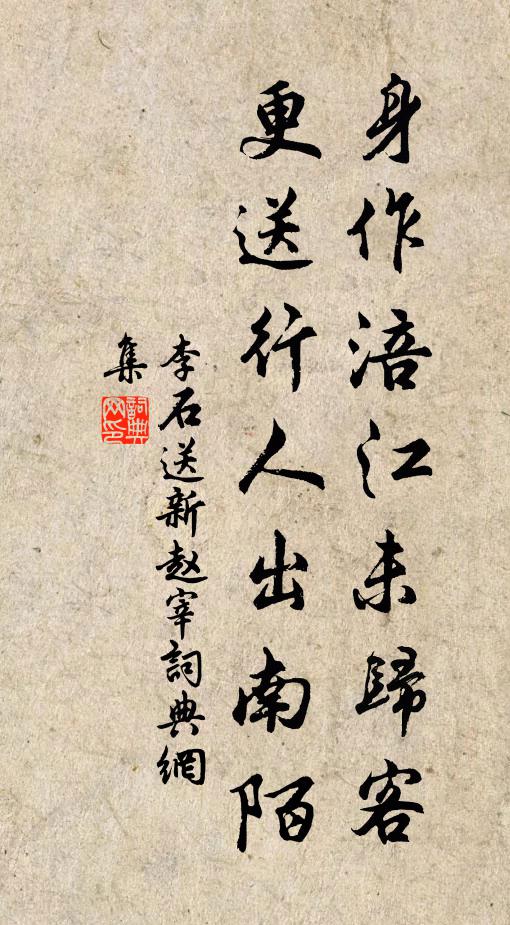 身作涪江未歸客
更送行人出南陌
李石送新赵宰詞典網
集
詞典网印